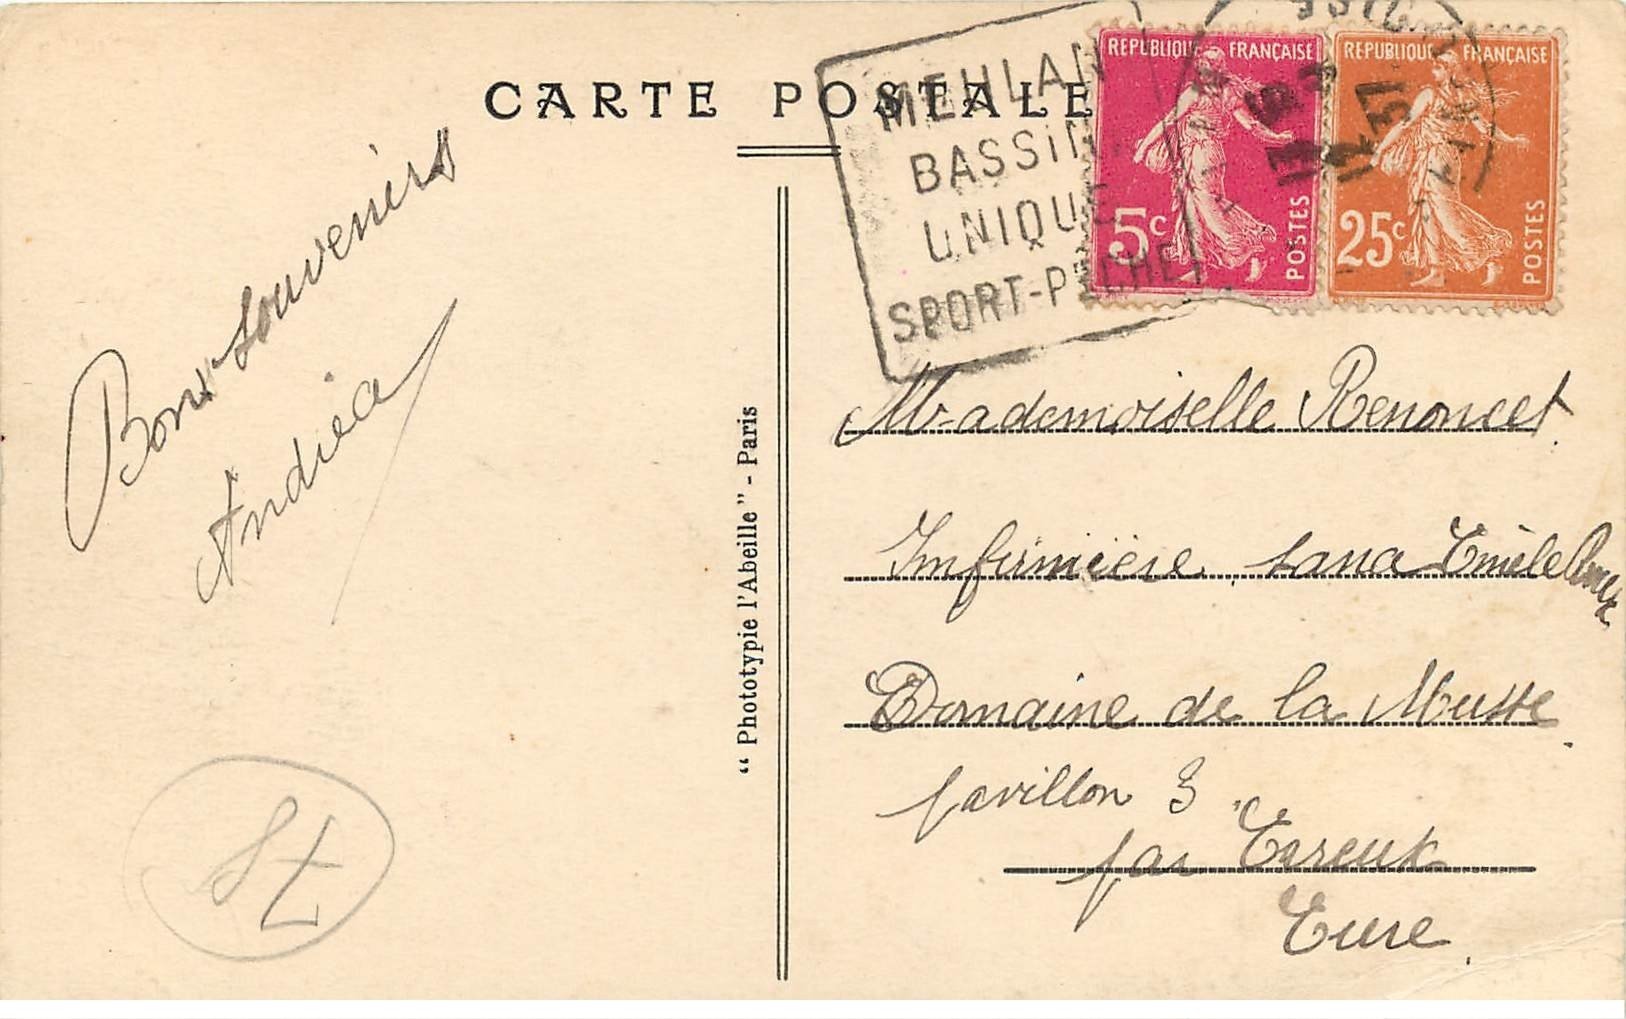 CARTE POSTALE
MEHLAN
BASSIN
UNIQUE
SPORT-PECHE
REPUBLIQUE FRANÇAISE
5c
POSTES
REPUBLIQUE FRANÇAISE
25c
POSTES
37
Bons souvenirs
Andréa
“ Phototypie l'Abeille ” - Paris
Mademoiselle Renoncet
Infirmière sana Emile
Domaine de la Musse
pavillon 3
par Evreux
Eure